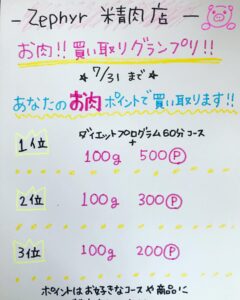 - Zephyr 精肉店 -
お肉!! 買い取りグランプリ!!
★ 7/31 まで ★
あなたのお肉ポイントで買い取ります!!
ダイエットプログラム60分コース
+
1位 100g 500Ⓟ
2位 100g 300Ⓟ
3位 100g 200Ⓟ
ポイントはお好きなコースや商品に